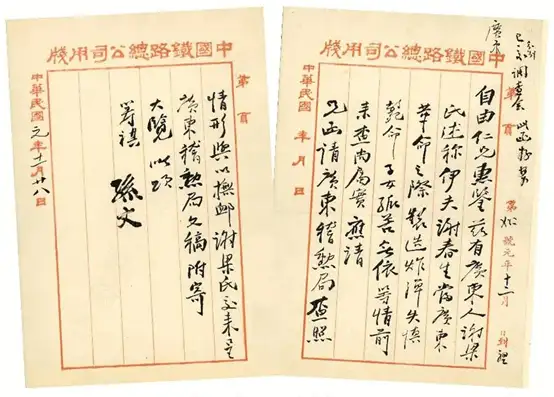 中國鐵路總公司用牋
廣東
第 頁
第 號元年十二月 日
自由仁兄惠鑒茲有廣東人謝梁
氏述稱伊夫謝春生當廣東
革命之際製造炸彈失慎
斃命子女孤苦無依等情前
來查尚屬實應請
兄函請廣東稽勳局查照
中華民國 年 月 日
中國鐵路總公司用牋
第 頁
情形與以撫卹謝梁氏交來呈
廣東稽勳局文稿附寄
大覽此頌
籌祺
孫文
中華民國元年十一月廿八日